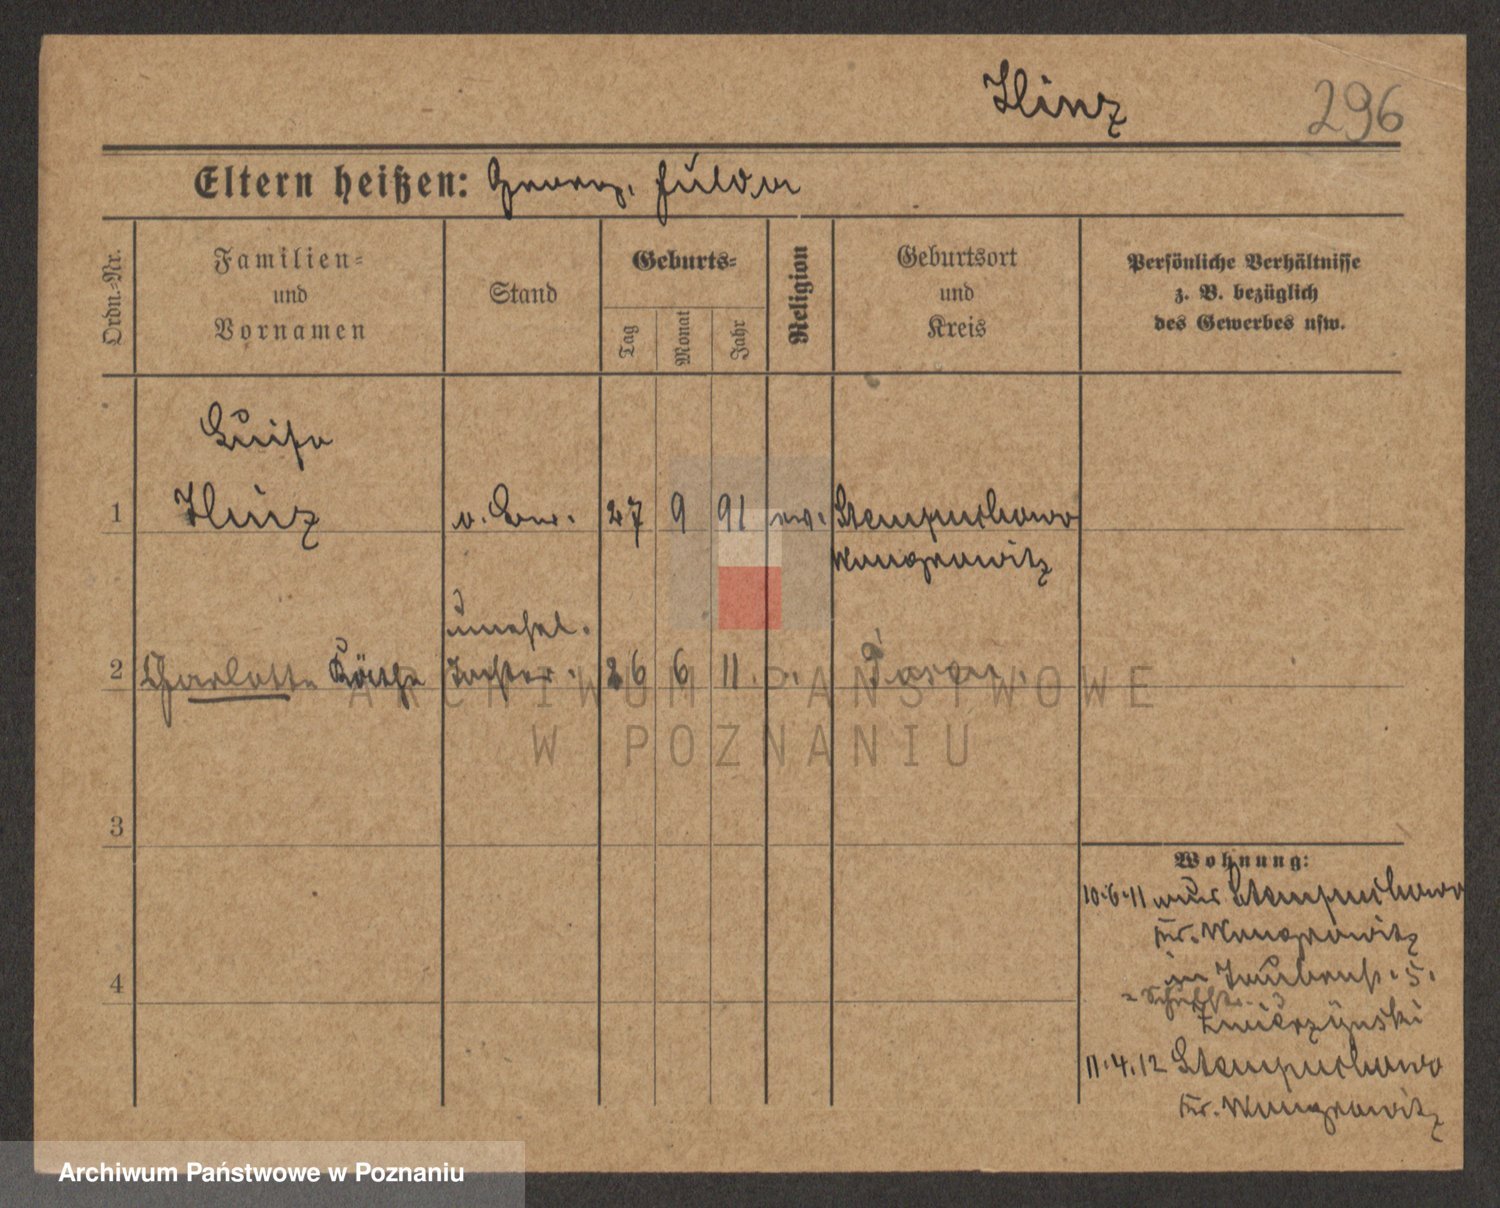 Hinz
296
Eltern heißen: Georg, Hulda
Ordn.-Nr.
Familien-
und
Vornamen
Stand
Geburts-
Tag
Monat
Jahr
Religion
Geburtsort
und
Kreis
Persönliche Verhältnisse
z. B. bezüglich
des Gewerbes usw.
Luise
1 Hinz 27 9 91 ev. Stempuchowo
Wongrowitz
unehel.
2 Charlotte Käthe Tochter. 26 6 11 Posen.
3
4
Wohnung:
10.6.11 aus Stempuchowo
Kr. Wongrowitz
in Taubenst. 5.
11.4.12 Stempuchowo
Kr. Wongrowitz
ARCHIWUM PAŃSTWOWE
W POZNANIU
Archiwum Państwowe w Poznaniu